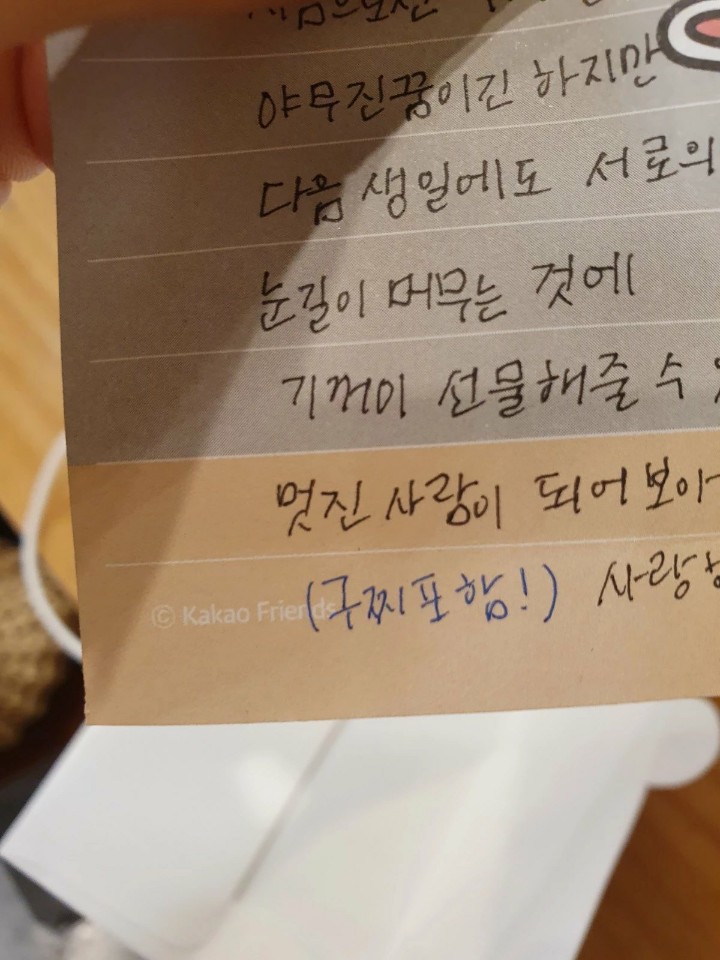 야무진꿈이긴 하지만
다음 생일에도 서로의
눈길이 머무는 것에
기꺼이 선물해줄 수
멋진 사람이 되어보아
(구찌포함!) 사랑
© Kakao Friends